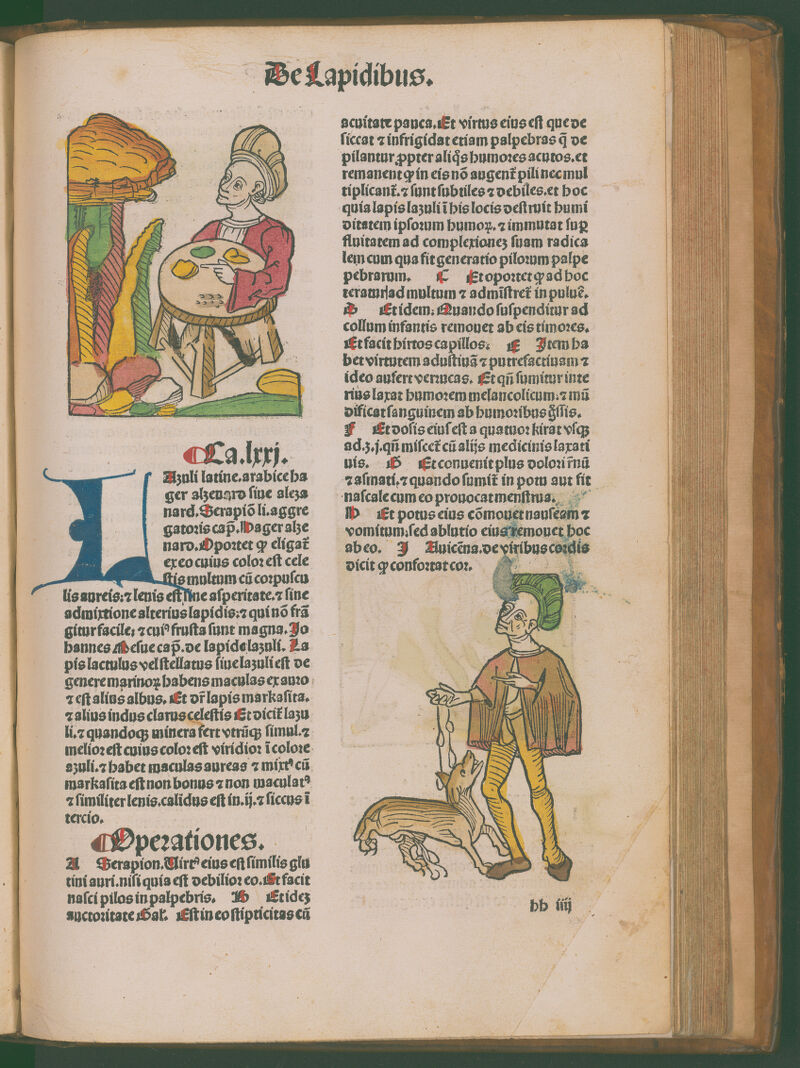 De Lapidibus.
Ca.lxxj.
LAzuli latine.arabice ha
ger alzenard siue aleza
nard.Serapiō li.aggre
gatoris cap̄.Hager alze
nard.Oportet ꝙ eligat᷑
ex eo cuius color est cele
stis multum cū corpuscu
lis aureis:⁊ lenis est sine asperitate.⁊ sine
admixtione alterius lapidis:⁊ qui nō frā
gitur facile:⁊ cuiꝰ frusta sunt magna. Jo
hannes Mesue cap̄.de lapide lazuli. La
pis lactulus vel stellatus siue lazuli est de
genere marinoꝝ habens maculas ex auro
⁊ est alius albus. Et dr̄ lapis markasita.
⁊ alius indus clarus celestis Et dicit᷑ lazu
li.⁊ quandoqꝫ minera fert vtrūqꝫ simul.⁊
melior est cuius color est viridior ī colore
azuli.⁊ habet maculas aureas ⁊ mixtꝰ cū
markasita est non bonus ⁊ non maculatꝰ
⁊ similiter lenis.calidus est in.ij.⁊ siccus ī
tercio.
Operationes.
A Serapion.Uirtꝰ eius est similis glu
tini auri.nisi quia est debilior eo.Et facit
nasci pilos in palpebris. B Et idez
auctoritate Gal. Est in eo stipticitas cū
acuitate pauca.Et virtus eius est que de
siccat ⁊ infrigidat etiam palpebras q̄ de
pilantur ꝓpter aliq̄s humores acutos.et
remanent ꝙ in eis nō augent᷑ pili nec mul
tiplicant᷑.⁊ sunt subtiles ⁊ debiles.et hoc
quia lapis lazuli ī his locis destruit humi
ditatem ipsorum humoꝝ.⁊ immutat suꝑ
fluitatem ad complexionez suam radica
lem cum qua fit generatio pilorum palpe
pebrarum. C Et oportet ꝙ ad hoc
teratur ad multum ⁊ admīstret᷑ in puluē.
D Et idem: Quando suspenditur ad
collum infantis remouet ab eis timores.
Et facit hirtos capillos: E Item ha
bet virtutem adustiuā ⁊ putrefactiuam ⁊
ideo aufert verrucas. Et qn̄ sumitur inte
rius laxat humorem melancolicum:⁊ mū
dificat sanguinem ab humoribus g̃ssis.
F Et dosis eius est a quatuor kirat vsqꝫ
ad.ʒ.j.qn̄ miscet᷑ cū alijs medicinis laxati
uis. G Et conuenit plus dolori r̄nū
⁊ asmati.⁊ quando sumit᷑ in potu aut fit
nascale cum eo prouocat menstrua.
H Et potus eius cōmouet nauseam ⁊
vomitum:sed ablutio eius remouet hoc
ab eo. J Auicēna.de viribus cordis
dicit ꝙ confortat cor.
bb iiij